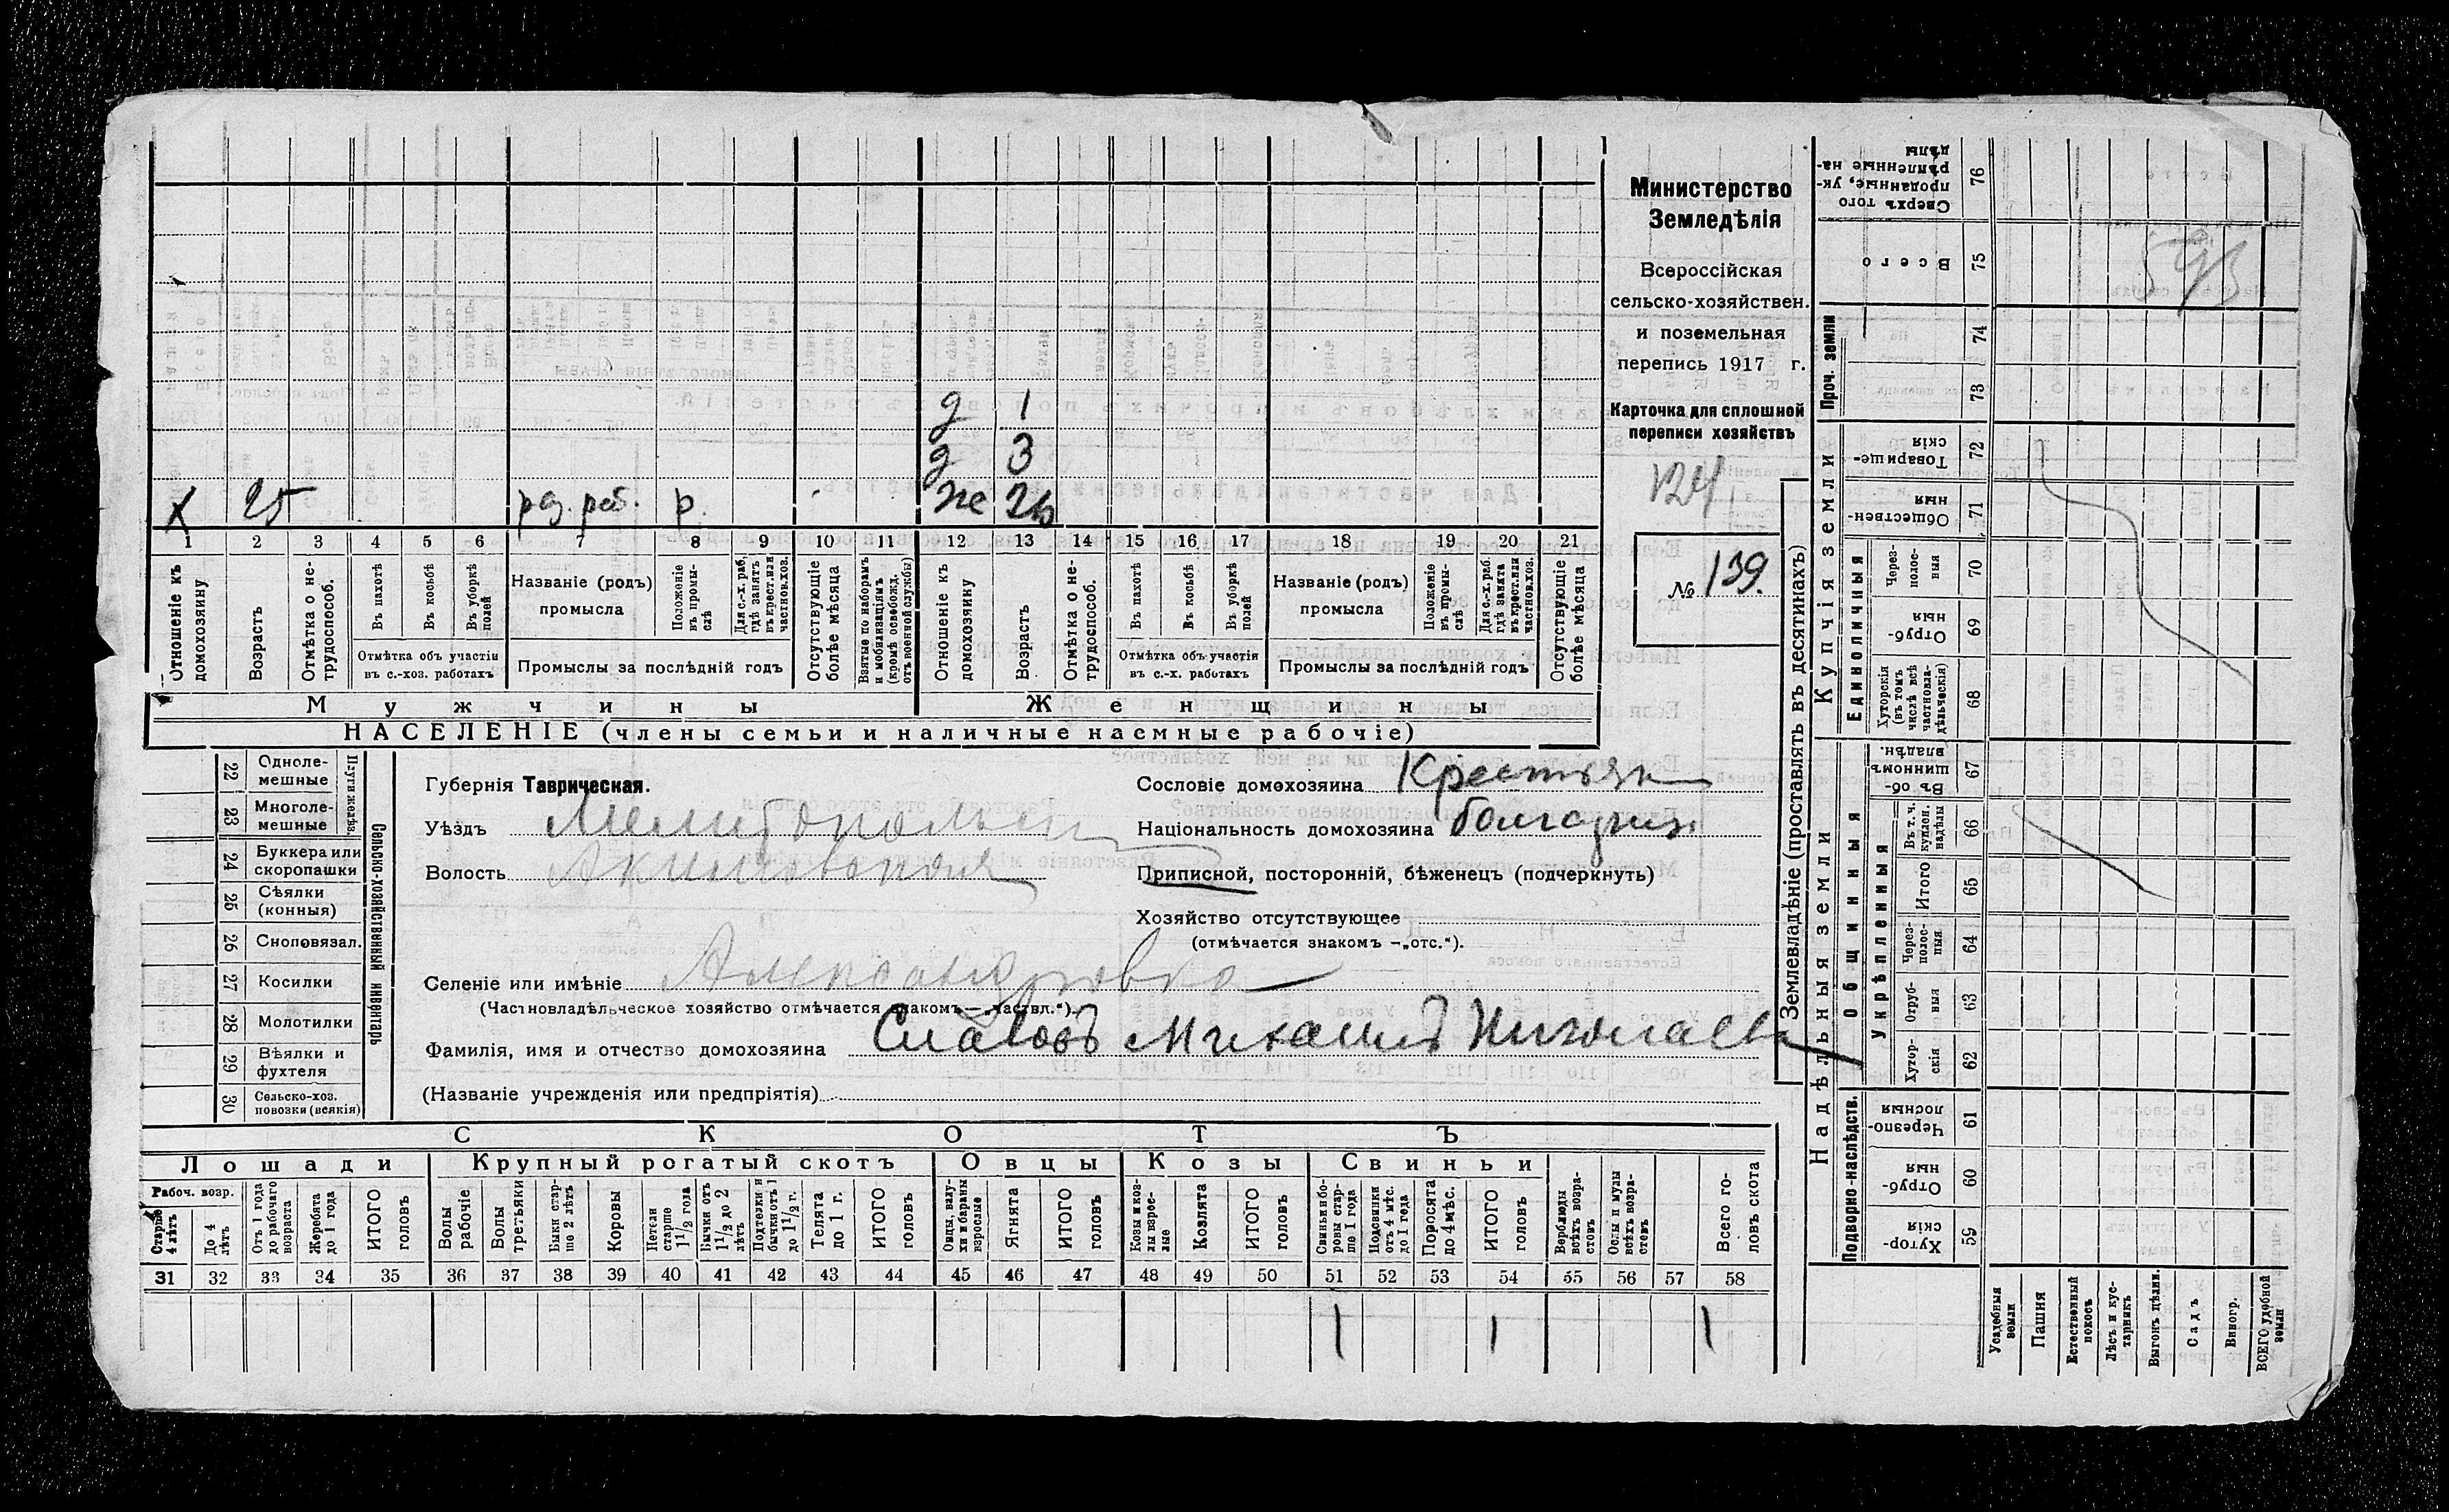 Министерство
Земледѣлія
Всероссійская
сельско-хозяйствен.
и поземельная
перепись 1917 г.
Карточка для сплошной
переписи хозяйствъ
124
№ 139.
593
д 1
д 3
х 25 р. же 26
1 2 3 4 5 6 7 8 9 10 11 12 13 14 15 16 17 18 19 20 21
Отношеніе къ домохозяину
Возрастъ
Отмѣтка о нетрудоспособ.
Въ пахотѣ
Въ косьбѣ
Въ уборкѣ полей
Отмѣтка объ участіи
въ с.-хоз. работахъ
Названіе (родъ)
промысла
Положеніе въ промыслѣ
Для с.-х. раб. гдѣ занятъ въ крест. или частнов. хоз.
Промыслы за послѣдній годъ
Отсутствующіе болѣе мѣсяца
Взятые по наборамъ и мобилизаціямъ (кромѣ освобожд. отъ военной службы)
Отношеніе къ домохозяину
Возрастъ
Отмѣтка о нетрудоспособ.
Въ пахотѣ
Въ косьбѣ
Въ уборкѣ полей
Отмѣтка объ участіи
въ с.-х. работахъ
Названіе (родъ)
промысла
Положеніе въ промыслѣ
Для с.-х. раб. гдѣ занята въ крест. или частнов. хоз.
Промыслы за послѣдній годъ
Отсутствующіе болѣе мѣсяца
Мужчины Женщины
НАСЕЛЕНІЕ (члены семьи и наличные наемные рабочіе)
Сельско-хозяйственный инвентарь
Плуги желѣз.
22 Однолемешные
23 Многолемешные
24 Буккера или скоропашки
25 Сѣялки (конныя)
26 Сноповязал.
27 Косилки
28 Молотилки
29 Вѣялки и фухтеля
30 Сельско-хоз. повозки (всякія)
Губернія Таврическая.
Уѣздъ Мелитопольскій
Волость Акимовская
Селеніе или имѣніе Александровка
(Частновладѣльческое хозяйство отмѣчается знакомъ —„частвл.“).
Фамилія, имя и отчество домохозяина Славовъ Михаилъ Николаев
(Названіе учрежденія или предпріятія)
Сословіе домохозяина Крестьян
Національность домохозяина болгаринъ
Приписной, посторонній, бѣженецъ (подчеркнуть)
Хозяйство отсутствующее
(отмѣчается знакомъ —„отс.“).
СКОТЪ
Лошади Крупный рогатый скотъ Овцы Козы Свиньи
Рабоч. возр.
Старше 4 лѣтъ
До 4 лѣтъ
Отъ 1 года до рабочаго возраста
Жеребята до 1 года
ИТОГО головъ
Волы рабочіе
Волы третьяки
Быки старше 2 лѣтъ
Коровы
Нетели старше 1 1/2 года
Бычки отъ 1 1/2 до 2 лѣтъ
Подтелки и бычки отъ 1 до 1 1/2 г.
Телята до 1 г.
ИТОГО головъ
Овцы, валухи и бараны взрослые
Ягнята
ИТОГО головъ
Козы и козлы взрослые
Козлята
ИТОГО головъ
Свиньи и боровы старше 1 года
Подсвинки отъ 4 мѣс. до 1 года
Поросята до 4 мѣс.
ИТОГО головъ
Верблюды всѣхъ возрастовъ
Ослы и мулы всѣхъ возрастовъ
Всего головъ скота
31 32 33 34 35 36 37 38 39 40 41 42 43 44 45 46 47 48 49 50 51 52 53 54 55 56 57 58
1 1 1
Землевладѣніе (проставлять въ десятинахъ)
Надѣльныя земли Купчія земли Проч. земли
Подворно-наслѣдств.
Общинныя
Укрѣпленныя
Единоличныя
59 Хуторскія
60 Отрубныя
61 Черезполосныя
62 Хуторскія
63 Отрубныя
64 Черезполосныя
65 Итого
66 Въ т. ч. куплен. надѣлы
67 Въ общинномъ владѣн.
68 Хуторскія (въ томъ числѣ всѣ частновладѣльческія)
69 Отрубныя
70 Черезполосныя
71 Общественныя
72 Товарищескія
73
74
75 Всего
76 Сверхъ того проданные, укрѣпленные надѣлы
Усадебныя земли
Пашня
Естественный покосъ
Лѣсъ и кустарникъ
Выгонъ цѣлин.
Садъ
Виногр.
ВСЕГО удобной земли